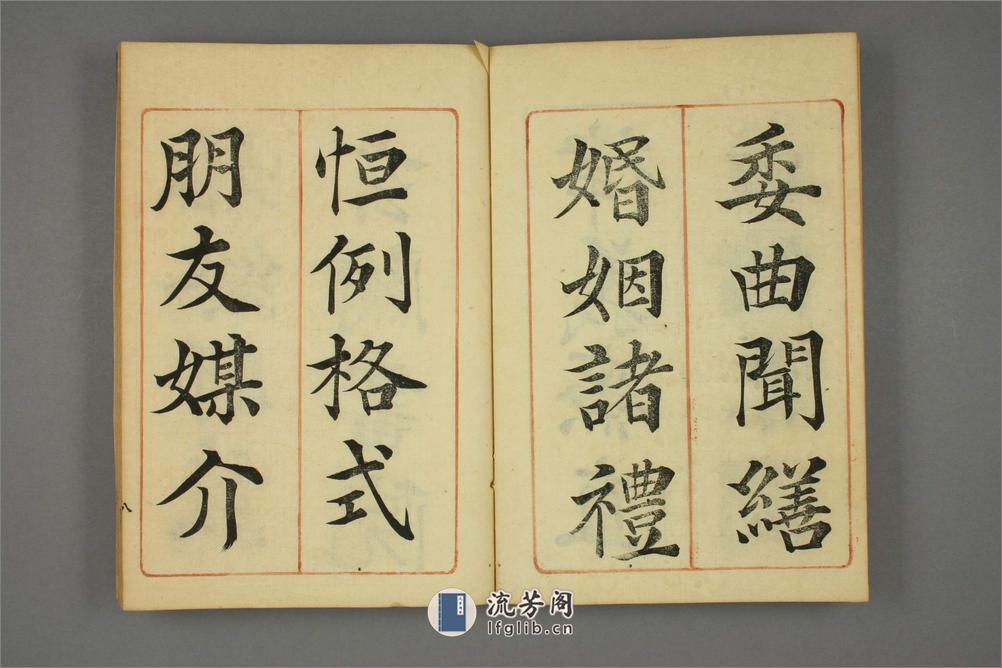 委曲聞繕
婚姻諸禮
恒例格式
朋友媒介
流芳阁
lfglib.cn